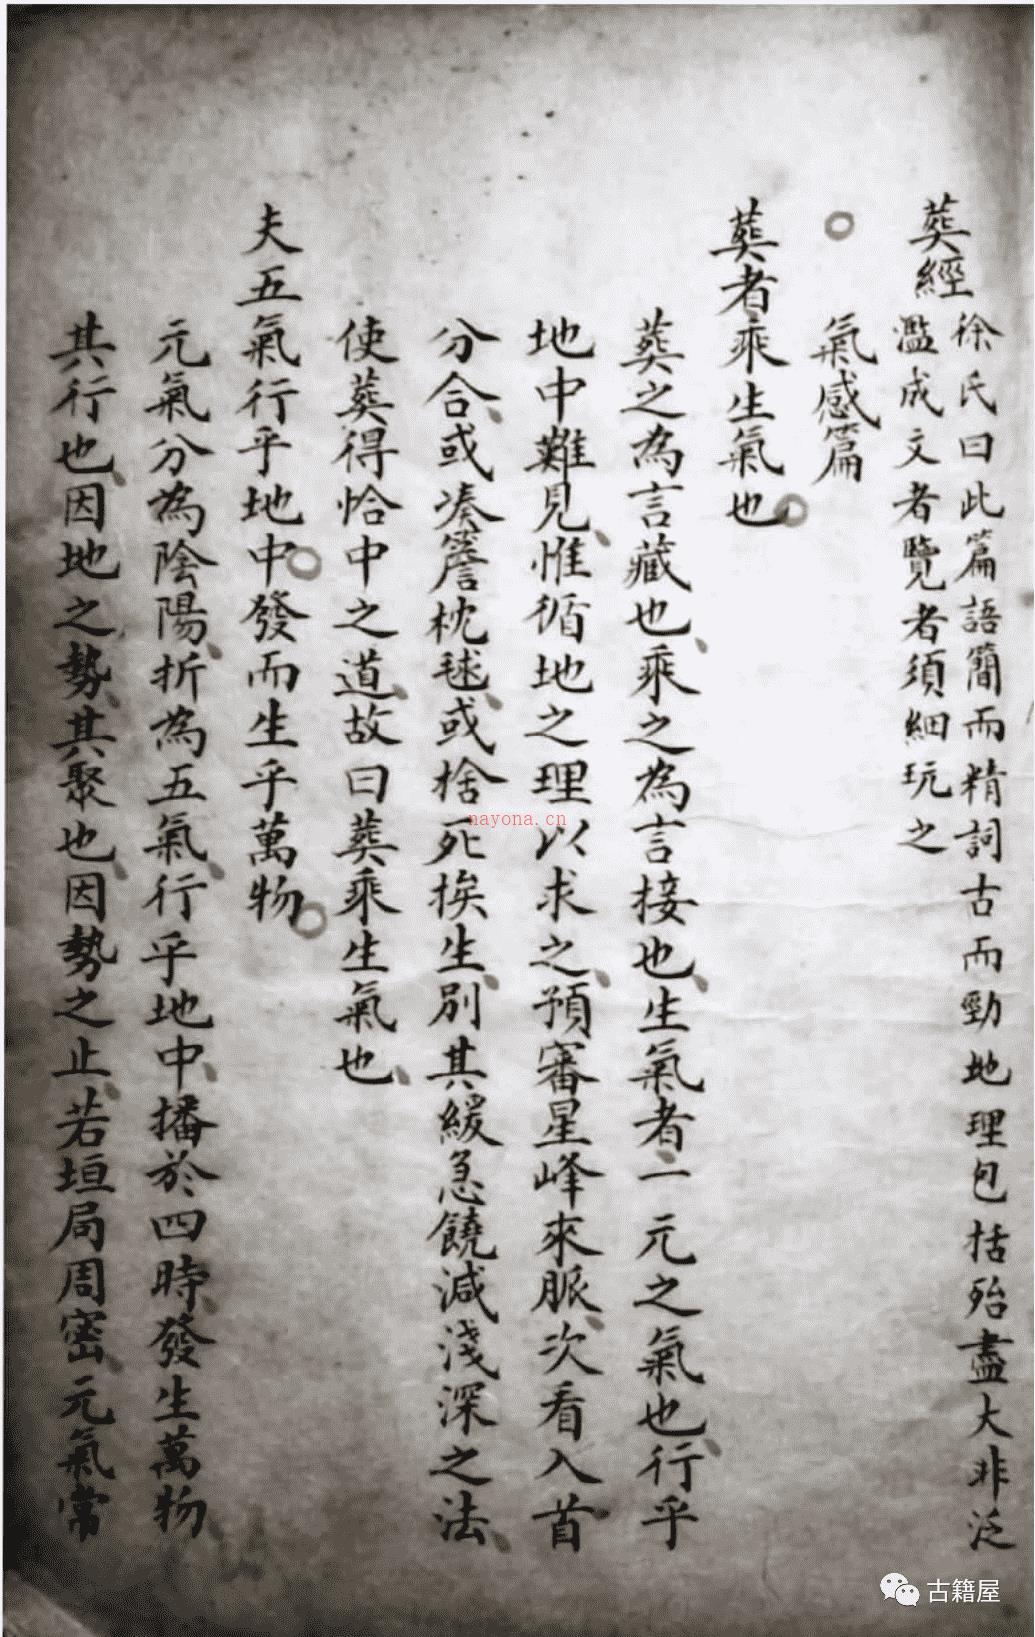 葬經
徐氏曰此篇語簡而精詞古而勁地理包括殆盡大非泛
濫成文者覽者須細玩之
氣感篇
葬者乘生氣也
葬之為言藏也乘之為言接也生氣者一元之氣也行乎
地中難見惟循地之理以求之預審星峰來脈次看入首
分合或湊簷枕毬或捨死挨生別其緩急饒減淺深之法
使葬得恰中之道故曰葬乘生氣也
夫五氣行乎地中發而生乎萬物
元氣分為陰陽折為五氣行乎地中播於四時發生萬物
其行也因地之勢其聚也因勢之止若垣局周密元氣常
nayona.cn
古籍屋